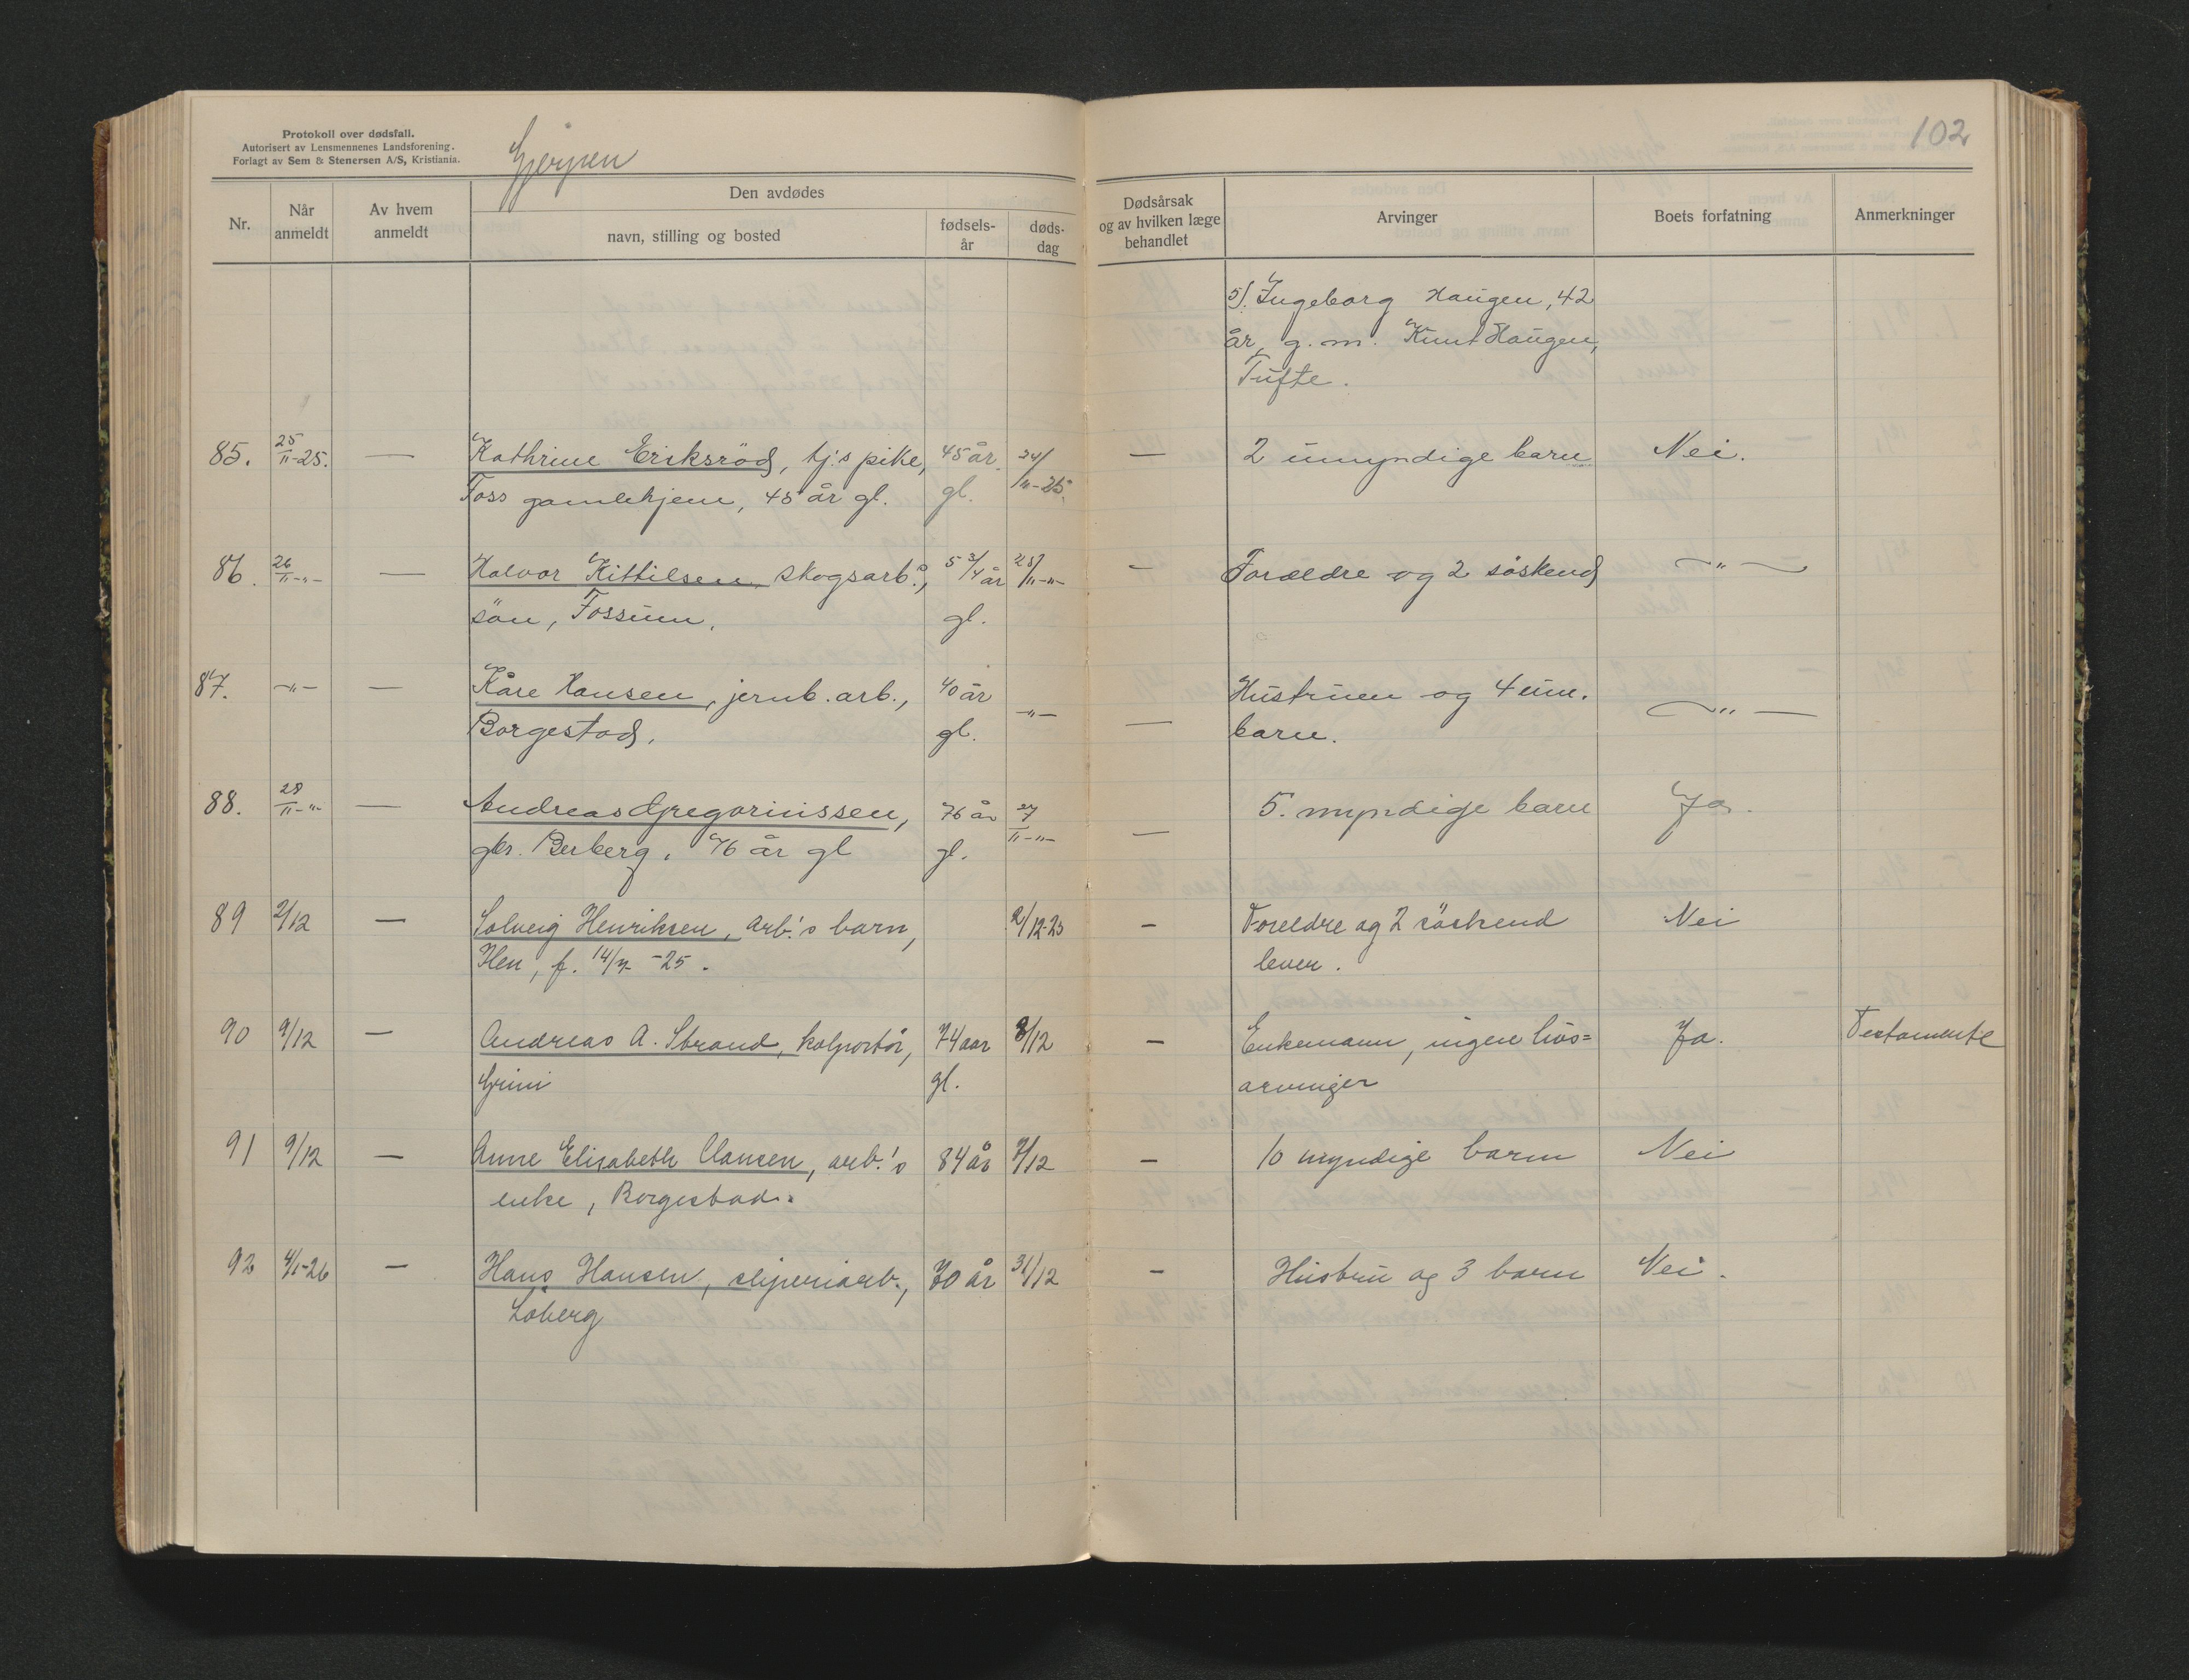 Protokoll over dødsfall.
Autorisert av Lensmennenes Landsforening.
Forlagt av Sem & Stenersen A/S, Kristiania.
Gjerpen
102
Nr.
Når anmeldt
Av hvem anmeldt
Den avdødes
navn, stilling og bosted
fødsels-år
døds-dag
Dødsårsak og av hvilken læge behandlet
Arvinger
Boets forfatning
Anmerkninger
5). Ingeborg Haugen, 42
år, g. m. Knut Haugen,
Tufte.
85. 25/11-25. — Kathrine Eriksröd, tj.s pike, 45 år 24/11-25. — 2 umyndige barn Nei.
Foss gamlehjem, 45 år gl. gl.
86. 26/11-"- — Halvor Kittilsen, skogsarb.s, 5 3/4 år 25/11-"- — Forældre og 2 söskend —"—
sön, Fossum. gl.
87. -"- — Kåre Hansen, jernb. arb., 40 år -"- — Hustruen og 4 um. —"—
Borgestad. gl. barn.
88. 28/11-"- — Andreas Gregoriussen, 76 år 27/11-"- — 5. myndige barn Ja.
gbr. Berberg. 76 år gl gl.
89 2/12 — Solveig Henriksen, arb.'s barn, 2/12-25 — Foreldre og 2 söskend Nei
Hen, f. 14/7-25. lever.
90 9/12 — Andreas A. Strand, kolportör, 74 aar 8/12 — Enkemann, ingen livs= Ja. Testamente
Grini gl. arvinger
91 9/12 — Anne Elisabeth Clausen, arb.'s 84 år 7/12 — 10 myndige barn Nei
enke, Borgestad.
92 4/1-26 — Hans Hansen, sliperiarb., 70 år 31/12 — Hustru og 3 barn Nei.
Löberg